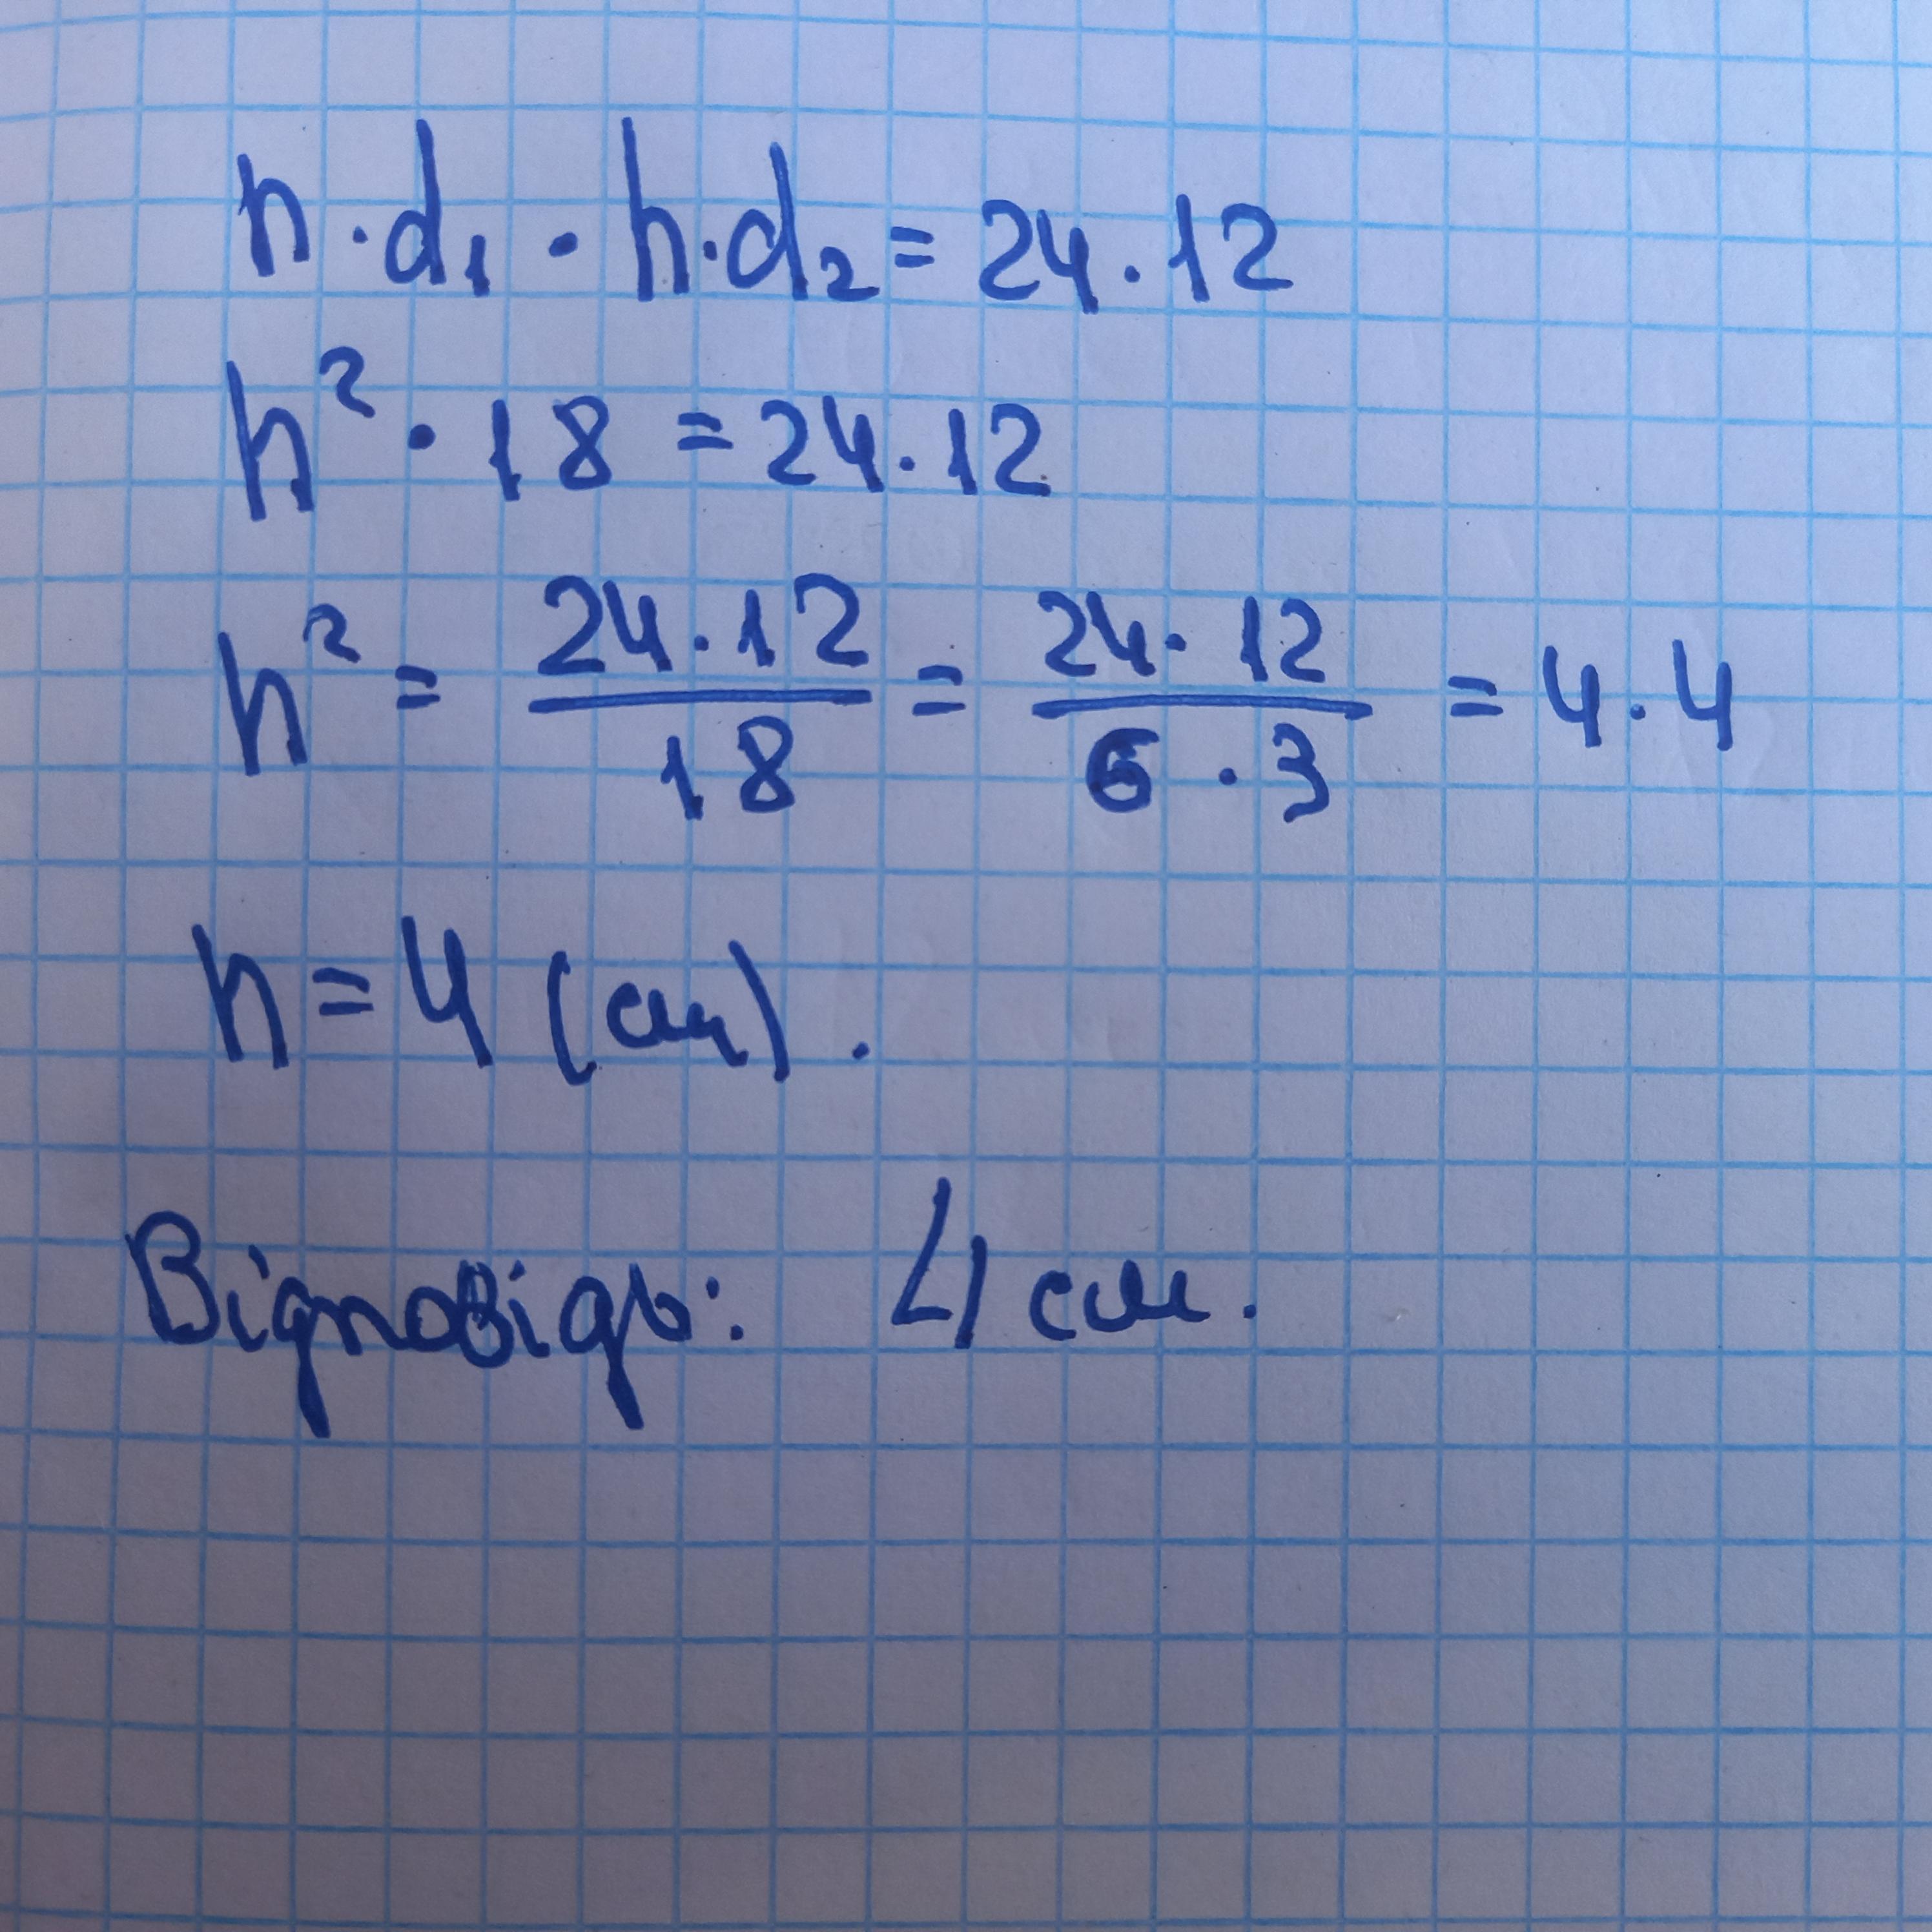 h · d₁ · h · d₂ = 24 · 12
h² · 18 = 24 · 12
h² = 24 · 12 / 18 = 24 · 12 / 6 · 3 = 4 · 4
h = 4 (см).
Відповідь: 4 см.